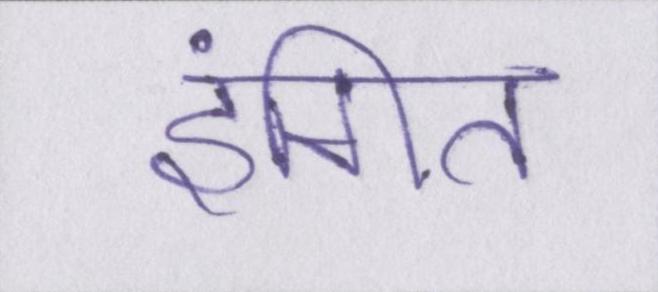 इंगित